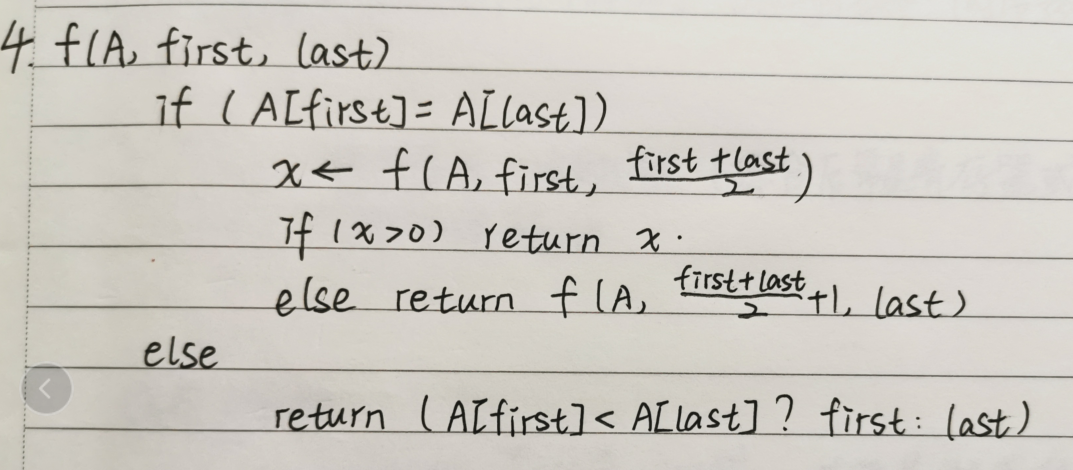 4. f(A, first, last)
if (A[first]= A[last])
x← f(A, first, first+last/2)
if (x>0) return x.
else return f(A, first+last/2+1, last)
else
return (A[first]< A[last]? first: last)